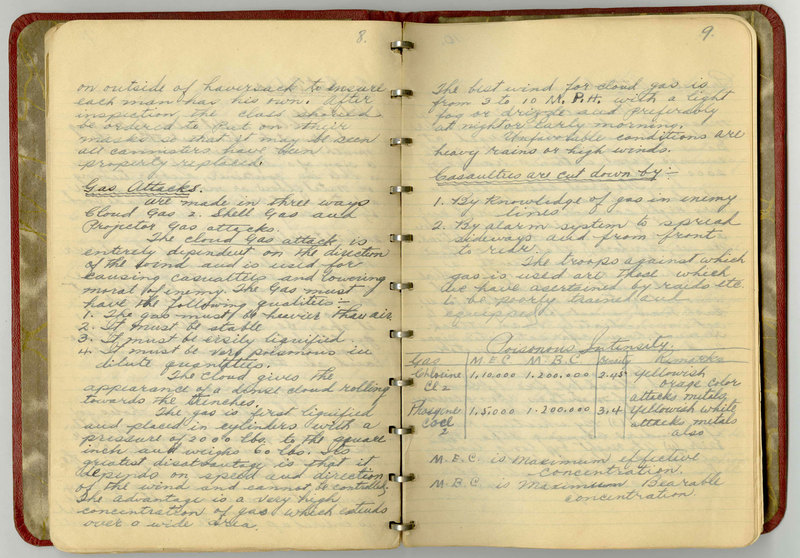 8.
on outside of haversack to ensure
each man has his own. After
inspection the class should
be ordered to Put on their
masks so that it may be seen
all cannisters have been
properly replaced.
Gas Attacks.
are made in three ways
Cloud Gas 2. Shell Gas and
Projector Gas attacks.
The cloud Gas attack is
entirely dependent on the direction
of the wind and is used for
causing casualties and lowering
moral of enemy. The Gas must
have the following qualities:-
1. The gas must be heavier than air
2. It must be stable
3. It must be easily liquified
4. It must be very poisonous in
dilute quantities.
The cloud gives the
appearance of a dense cloud rolling
towards the trenches.
The gas is first liquified
and placed in cylinders with a
pressure of 2000 lbs. to the square
inch and weighs 60 lbs. Its
greatest disadvantage is that it
depends on speed and direction
of the wind and cannot be controlled.
The advantage is a very high
concentration of gas which extends
over a wide area.
9.
The best wind for cloud gas is
from 3 to 10 M.P.H. with a light
fog or drizzle and preferably
at night or early morning.
Unfavorable conditions are
heavy rains or high winds.
Casaulties are cut down by:-
1. By Knowledge of gas in enemy
lines
2. By alarm system to spread
sideways and from front
to rear.
The troops against which
gas is used are those which
we have asertained by raids etc.
to be poorly trained and
equipped.
Poisonous Intinsity.
Gas M.E.C M.B.C. Density Remarks
Chlorine Cl2 1.10.000 1.200.000 2.45 Yellowish
orage color
attacks metals
Phosgine Cocl2 1.5.000 1.200.000 3.4 Yellowish white
attacks metals
also
M.E.C. is Maximum effective
concentration.
M.B.C. is Maximum Bearable
concentration